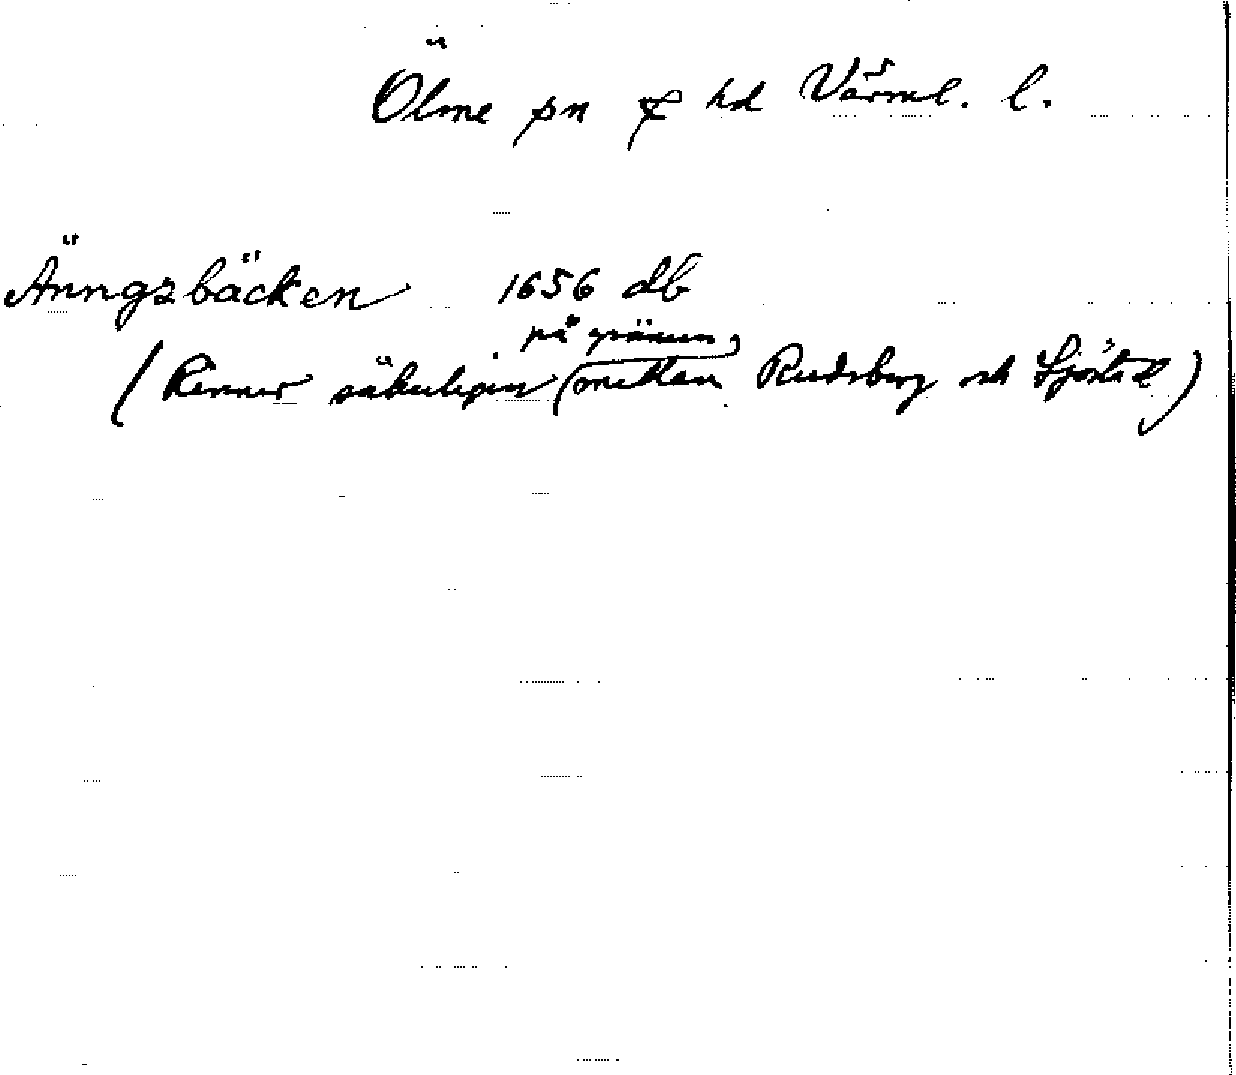 Ölme sn & hd Värml. l.
Änngzbäcken 1656 db
på gränsen
(Rinner säkerligen mellan Rudsberg och Sjöstad)